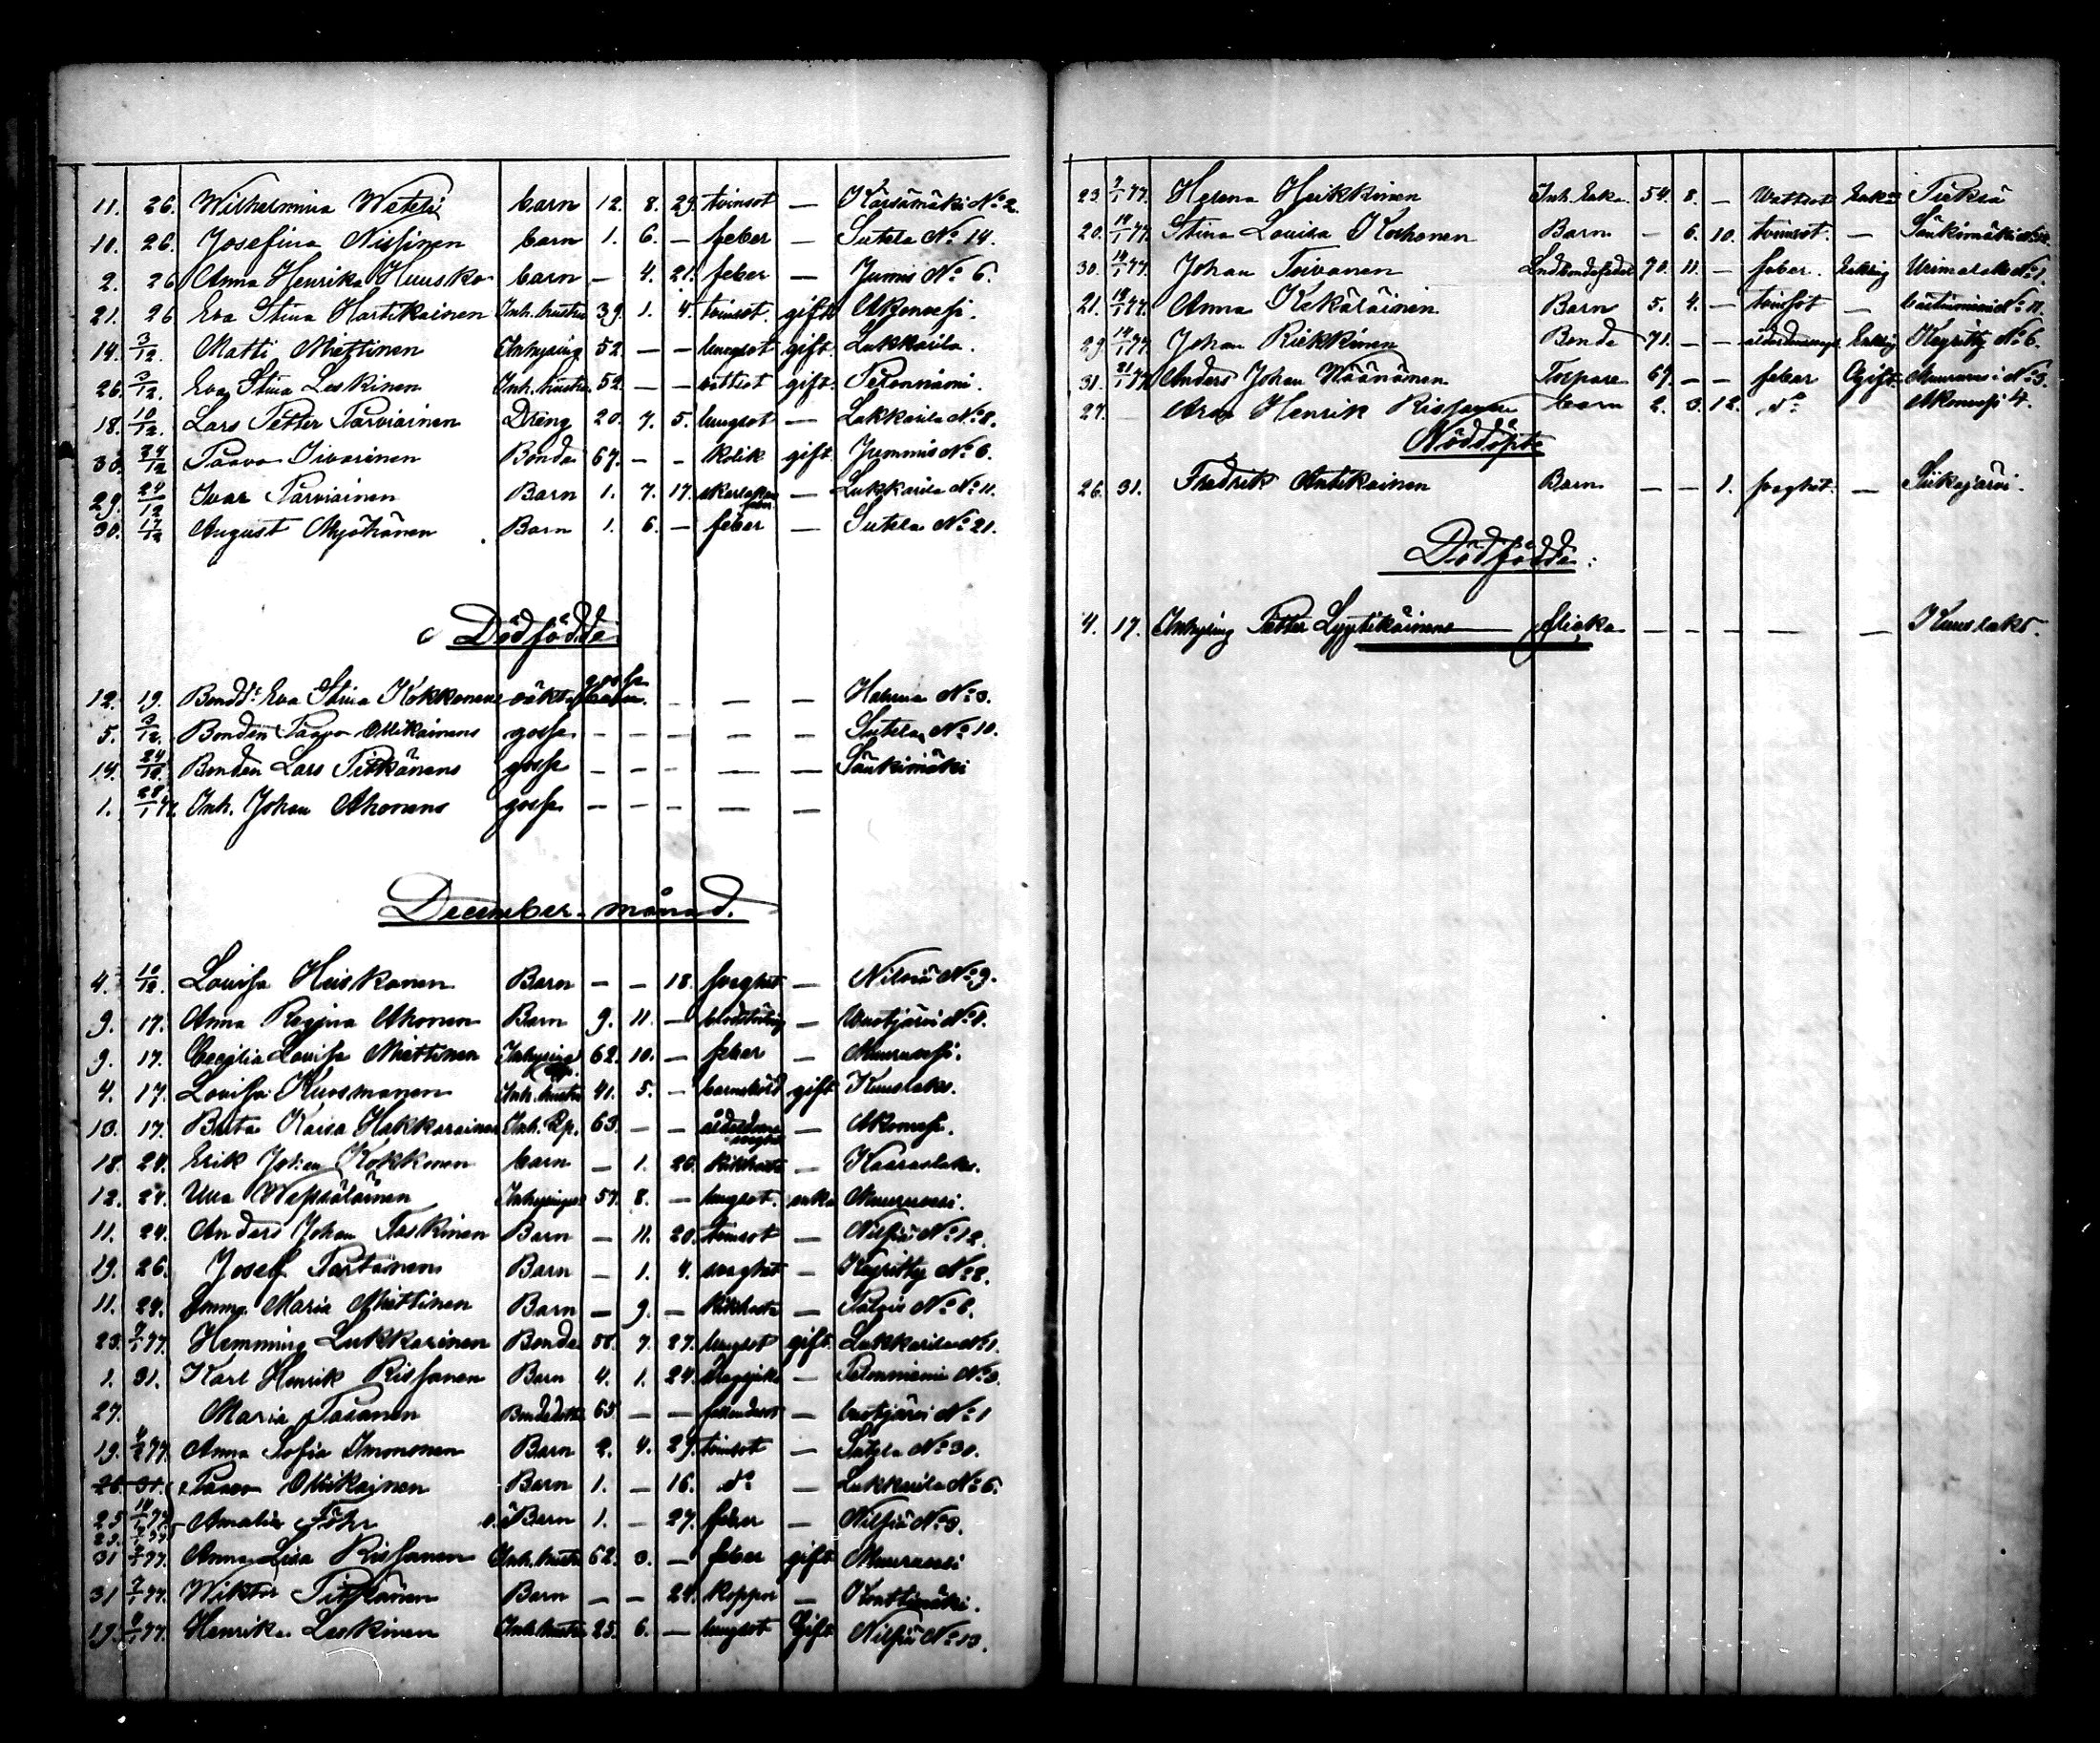 11. 26. Wilhelmina Weteli barn 12. 8. 29. tvinsot — Kärsämäki No 2.
10. 26. Josefina Nissinen barn 1. 6. — feber — Sutela No 14.
2. 26 Anna Henrika Huusko barn — 4. 21. feber — Jumis No 6.
21. 26 Eva Stina Hartikainen Inh. hustru 39. 1. 4. tvinsot. gift Akonvesi.
14. 3/12. Matti Miettinen Inhysing 52. — — lungsot gift. Lukkarila.
26. 3/12. Eva Stina Leskinen Inh. hustru 52. — — vattsot gift. Pelonniemi.
18. 10/12. Lars Petter Parviainen Dreng 20. 7. 5. lungsot — Lukkarila No 8.
30. 24/12 Paavo Iivarinen Bonde 67. — - kolik gift. Jummis No 6.
29. 24/12 Ivar Parviainen Barn 1. 7. 17. skarlakan feber — Lukkarila No 11.
30. 17/12 August Myöhänen Barn 1. 6. — feber — Sutela No 21.
Dödfödde
12. 19. Bondd:r Eva Stina Kokkonens oäkta gosse — — — Halma No 3.
5. 3/12. Bonden Paavo Ollikainens gosse — — — — — Sutela No 10.
14. 24/12. Bonden Lars Pitkänens gosse — — — — — Sänkimäki
1. 28/1 77. Inh. Johan Ahonens gosse — — — — —
December månad.
4. 10/12. Lovisa Heiskanen Barn — — 18. svaghet — Nilsiä No 9.
9. 17. Anna Regina Ahonen Barn 9. 11. — — Vuotjärvi No 1.
9. 17. Cecilia Lovisa Miettinen Inhysing 62. 10. — feber — Muuruvesi.
4. 17. Lovisa Kuosmanen Inh. hustru 41. 5. — barnsbörd gift Kuuslaks.
13. 17. Brita Kaisa Hakkarainen Inh. Rp. 63. — — ålderdoms svaghet — Akonvesi.
18. 24. Erik Johan Kokkonen barn — 1. 26. kikhosta — Kaaraslaks.
12. 24. Ulla Wepsäläinen Inhysinge 57. 8. — lungsot. enka Muuruvesi.
11. 24. Anders Johan Taskinen Barn — 11. 20. tvinsot — Nilsiä No 12.
19. 26. Josef Partanen Barn — 1. 4. svaghet — Keyritty No 8.
11. 24. Emma Maria Miettinen Barn — 9. — kikhosta — Palois No 6.
23. 7/1 77. Hemming Lukkarinen Bonde 58. 7. 27. lungsot gift. Lukkarila No 1.
1. 31. Karl Henrik Rissanen Barn 4. 1. 24. — Pelonniemi No 3.
27. Maria Pasanen 65. — — fallandesot — Vuotjärvi No 1
19. 4/2 77. Anna Sofia Immonen Barn 2. 4. 29. tvinsot — Sutela No 30.
26. 31. Paavo Ollikainen Barn 1. — 16. do — Lukkarila No 6.
25 14/1 77. Amalia Föhr Barn 1. — 27. feber — Nilsiä No 3.
31 7/1 77. Anna Lisa Rissanen Inh. hustru 62. 3. — feber gift Muuruvesi
31 7/1 77. Wiktor Pitkänen Barn — — 24. koppor — Konttimäki.
19. 4/1 77. Henrika Leskinen Inh. hustru 25. 6. — lungsot Gift Nilsiä No 13.
23. 7/1 77. Helena Heikkinen Inh. Enka 54. 8. — Wattsot Enka Pieksä
20. 14/1 77. Stina Lovisa Korhonen Barn — 6. 10. tvinsot. — Sänkimäki
30. 14/1 77. Johan Toivanen 70. 11. — feber. Enkling Urimolaks No 1.
21. 14/1 77. Anna Kekäläinen Barn 5. 4. — tvinsot —
29. 14/1 77. Johan Riekkinen Bonde 71. — — Enkling Keyritty No 6.
31. 21/1 77. Anders Johan Wäänänen Torpare 67. — — feber Ogift Muuruvesi No 3.
27. — Aron Henrik Rissanen barn 2. 3. 12. do Akonvesi 4.
Nöddöpte
26. 31. Fredrik Antikainen Barn — — 1. svaghet. — Siikajärvi.
Dödfödde:
4. 17. Inhysing Petter Lyytikäinens flicka — — — — — Kuuslaks.